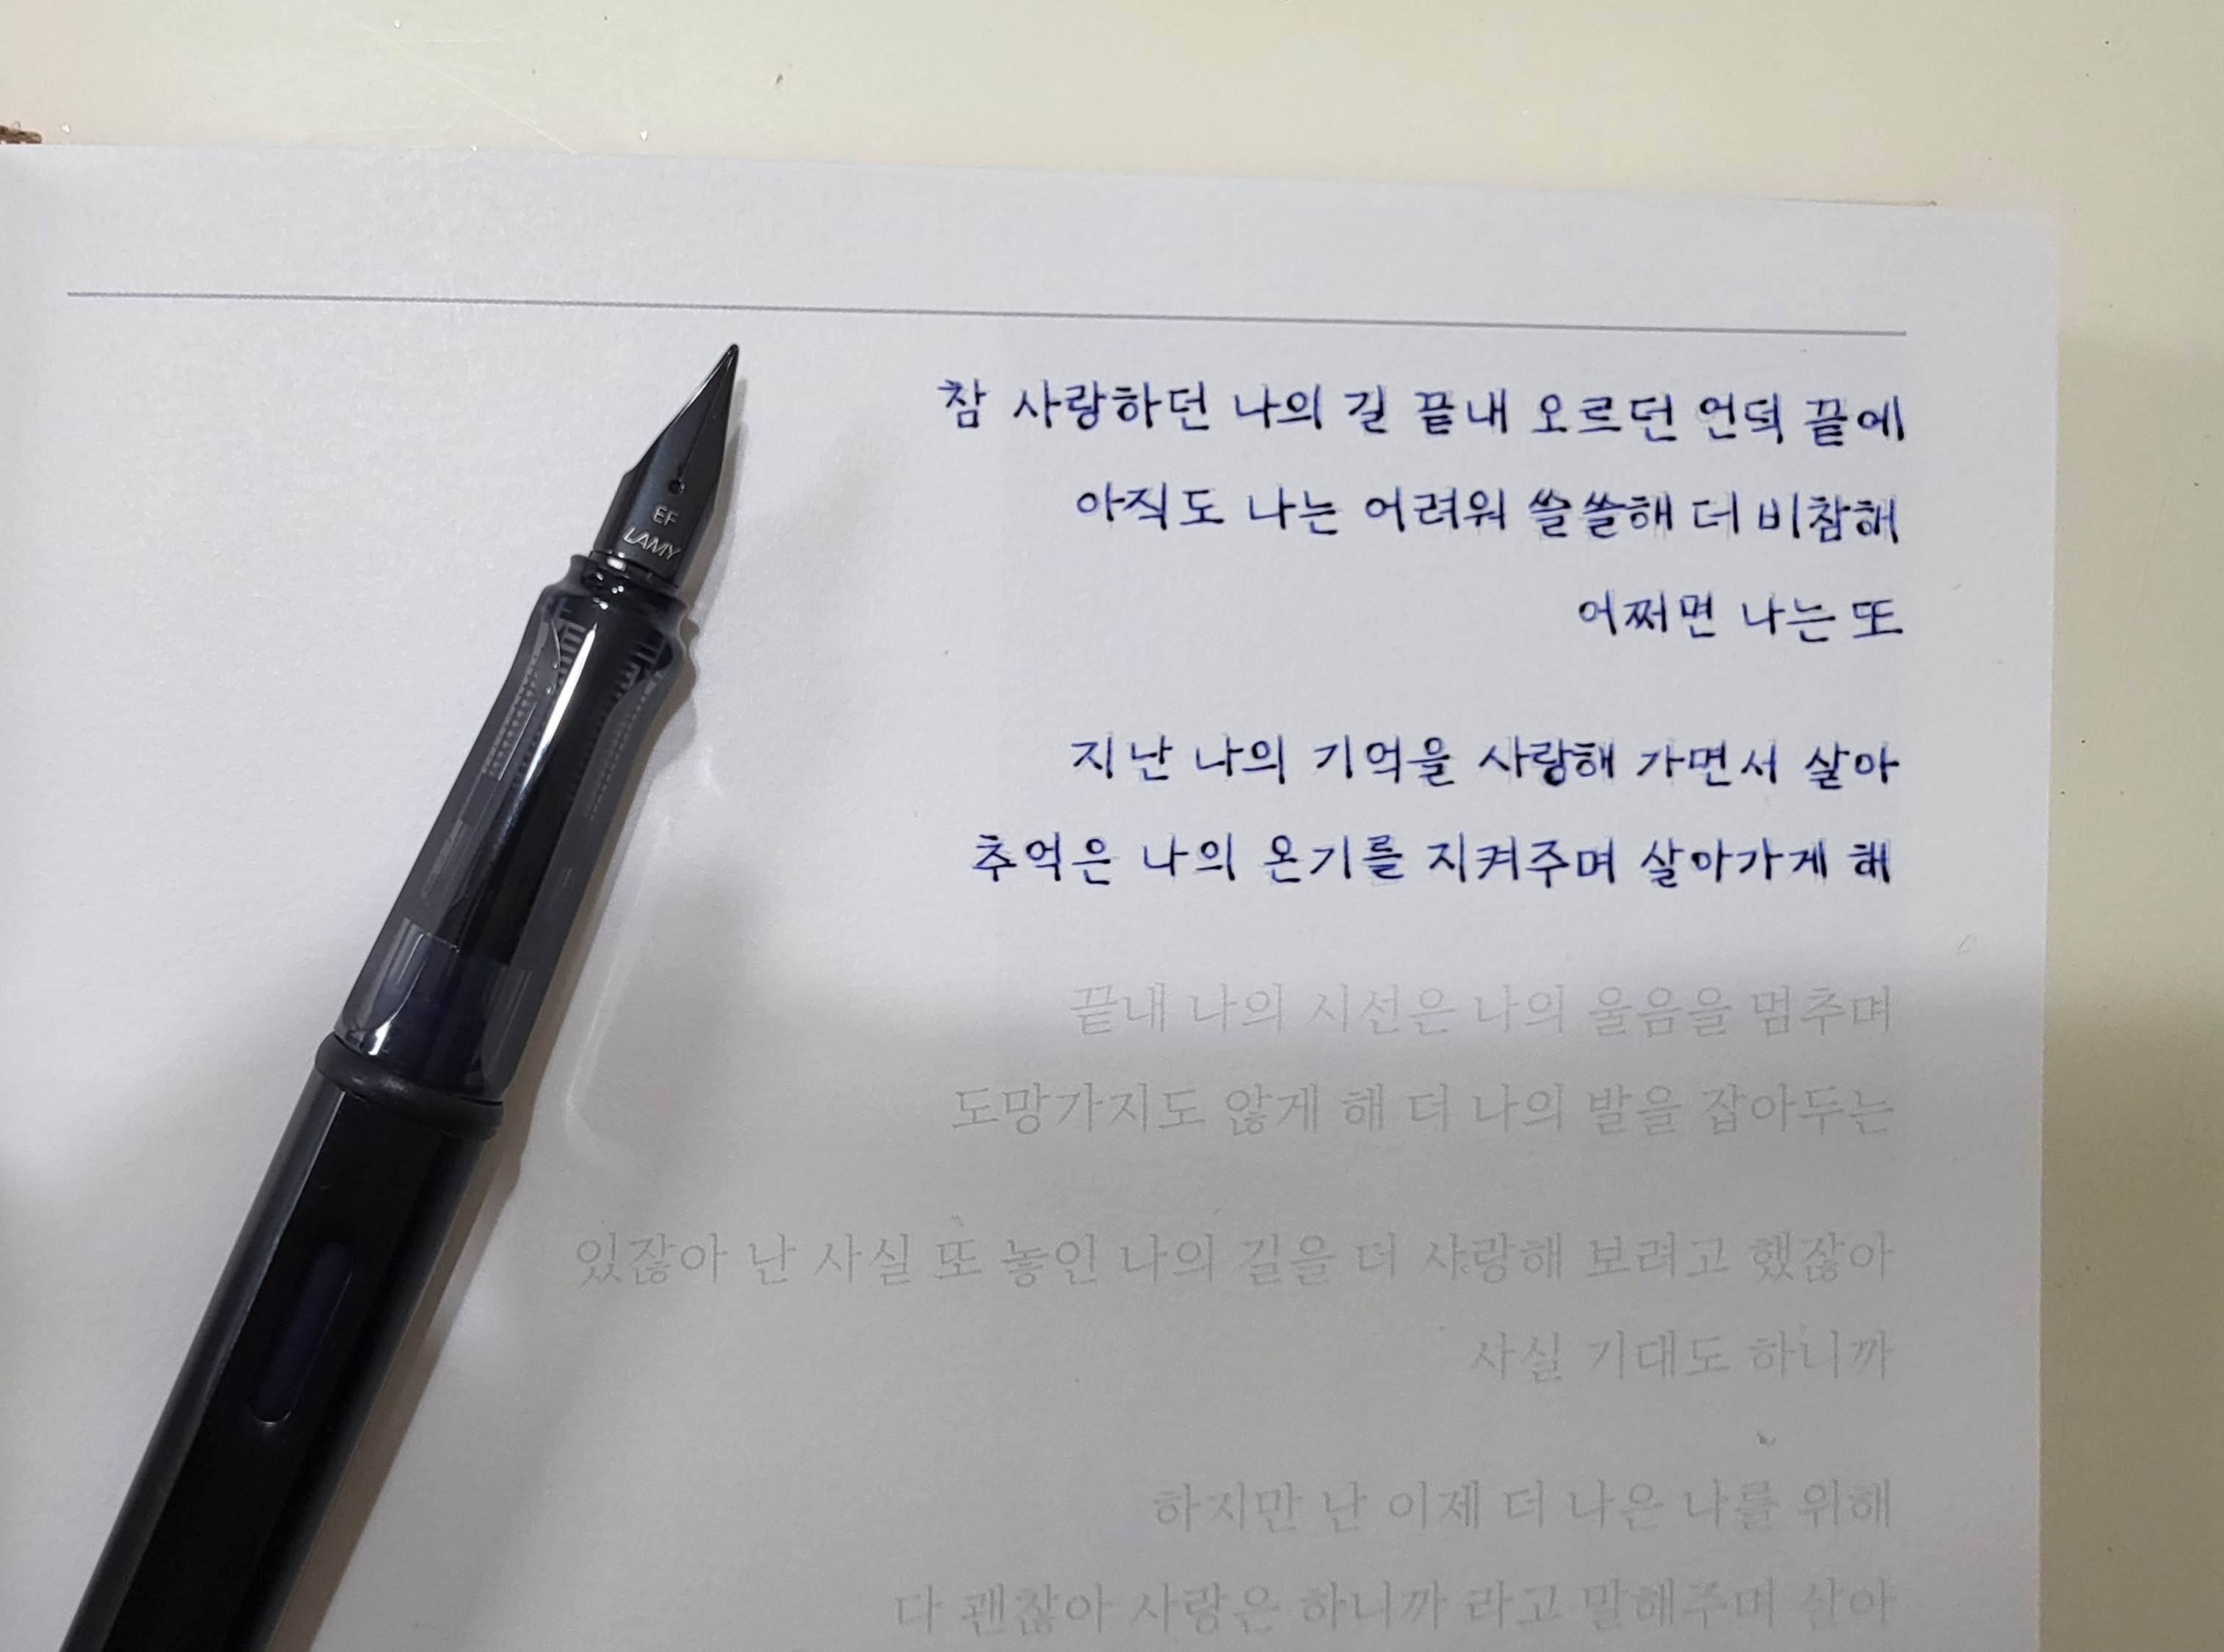 참 사랑하던 나의 길 끝내 오르던 언덕 끝에
아직도 나는 어려워 쓸쓸해 더 비참해
어쩌면 나는 또
지난 나의 기억을 사랑해 가면서 살아
추억은 나의 온기를 지켜주며 살아가게 해
끝내 나의 시선은 나의 울음을 멈추며
도망가지도 않게 해 더 나의 발을 잡아두는
있잖아 난 사실 또 놓인 나의 길을 더 사랑해 보려고 했잖아
사실 기대도 하니까
하지만 난 이제 더 나은 나를 위해
다 괜찮아 사랑은 하니까 라고 말해주며 살아
EF
LAMY